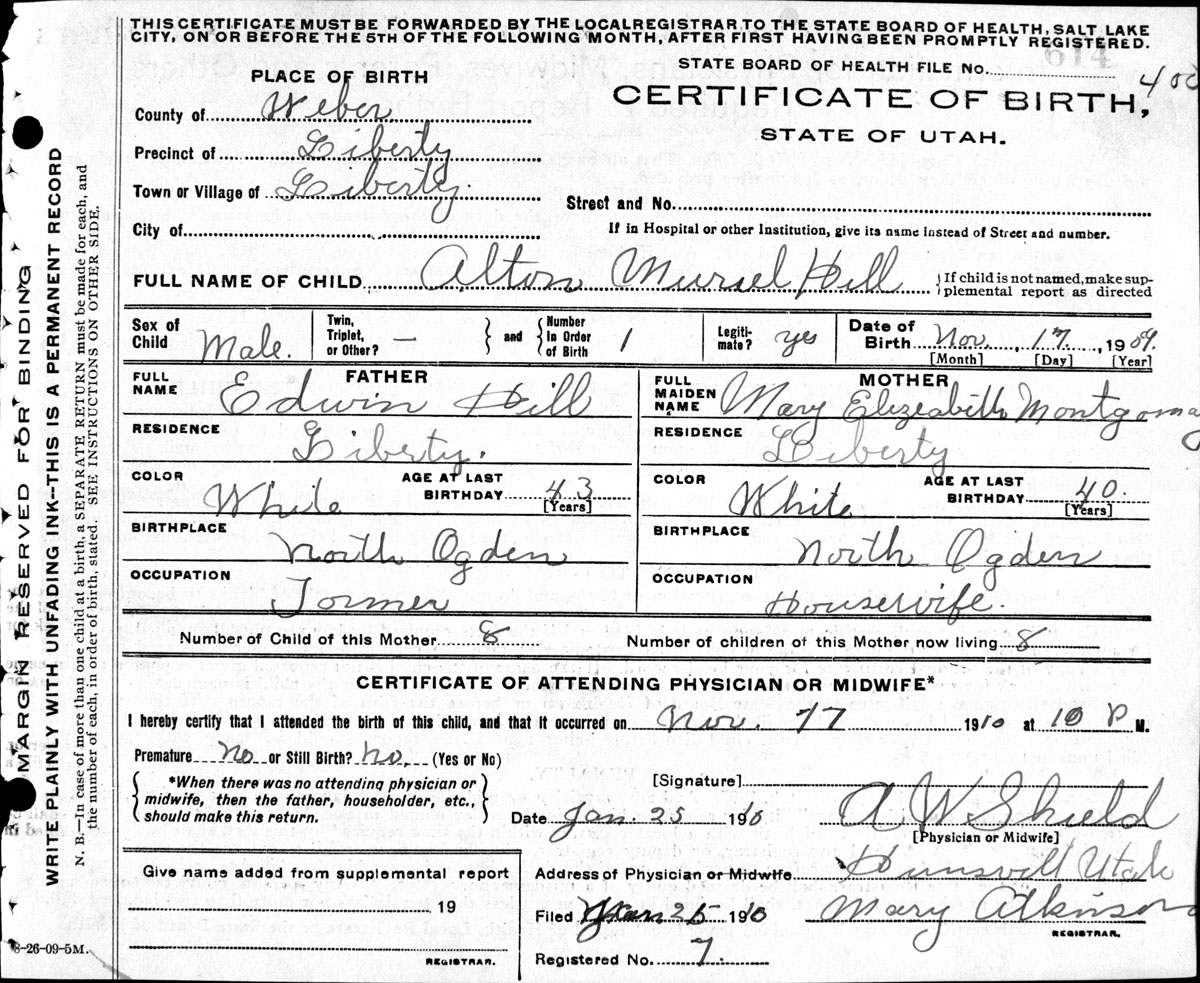 THIS CERTIFICATE MUST BE FORWARDED BY THE LOCALREGISTRAR TO THE STATE BOARD OF HEALTH, SALT LAKE
CITY, ON OR BEFORE THE 5TH OF THE FOLLOWING MONTH, AFTER FIRST HAVING BEEN PROMPTLY REGISTERED.
STATE BOARD OF HEALTH FILE No. 614
400
PLACE OF BIRTH
CERTIFICATE OF BIRTH,
STATE OF UTAH.
County of Weber
Precinct of Liberty
Town or Village of Liberty.
Street and No.
City of
If in Hospital or other Institution, give its name instead of Street and number.
FULL NAME OF CHILD Alton Muriel Hill
{If child is not named, make sup-
plemental report as directed
Sex of Child Male.
Twin, Triplet, or Other? —
and
Number In Order of Birth 1
Legiti-mate? yes
Date of Birth Nov. 17, 1909.
[Month] [Day] [Year]
FATHER
FULL NAME Edwin Hill
MOTHER
FULL MAIDEN NAME Mary Elizeabeth Montgomay
RESIDENCE Liberty.
RESIDENCE Liberty
COLOR White
AGE AT LAST BIRTHDAY 43
[Years]
COLOR White
AGE AT LAST BIRTHDAY 40.
[Years]
BIRTHPLACE North Ogden
BIRTHPLACE North Ogden
OCCUPATION Former
OCCUPATION Housewife.
Number of Child of this Mother 8
Number of children of this Mother now living 8
CERTIFICATE OF ATTENDING PHYSICIAN OR MIDWIFE*
I hereby certify that I attended the birth of this child, and that it occurred on Nov. 17 1910 at 10 P M.
Premature No or Still Birth? No. (Yes or No)
*When there was no attending physician or
midwife, then the father, householder, etc.,
should make this return.
[Signature]
Date Jan 25 1910
A W Shield
[Physician or Midwife]
Give name added from supplemental report
19
REGISTRAR.
Address of Physician or Midwife Hunsvill Utah
Filed Jan 26 1910
Mary Atkinson
REGISTRAR.
Registered No. 7.
8-26-09-5M.
MARGIN RESERVED FOR BINDING
WRITE PLAINLY WITH UNFADING INK--THIS IS A PERMANENT RECORD
N. B.—In case of more than one child at a birth, a SEPARATE RETURN must be made for each, and
the number of each, in order of birth, stated. SEE INSTRUCTIONS ON OTHER SIDE.